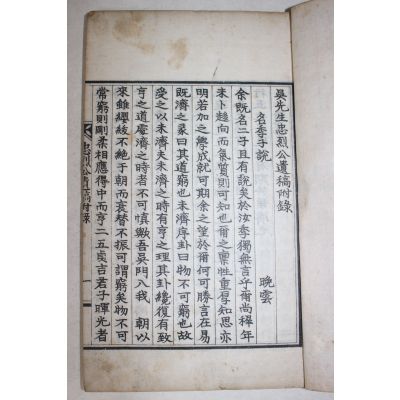 吳先生忠烈公遺稿附錄
名季子說
晚雲
余旣名二子且有說矣於汝季獨無言乎爾尚穉年
未卜趨向而氣質則可知也爾之禀性重厚知思亦
明若加之學成就可期余之望於爾何可勝言在易
旣濟之彖曰其道窮也未濟序卦曰物不可窮也故
受之以未濟夫未濟之時有亨之理其卦纔復有致
亨之道處濟之時者不可愼歟吾吳門入我 朝以
來雖纓紱不絶于朝而衰替不振可謂窮矣物不可
常窮則剛柔相應得中而亨二五貞吉君子暉光者
忠烈公遺稿附錄
一